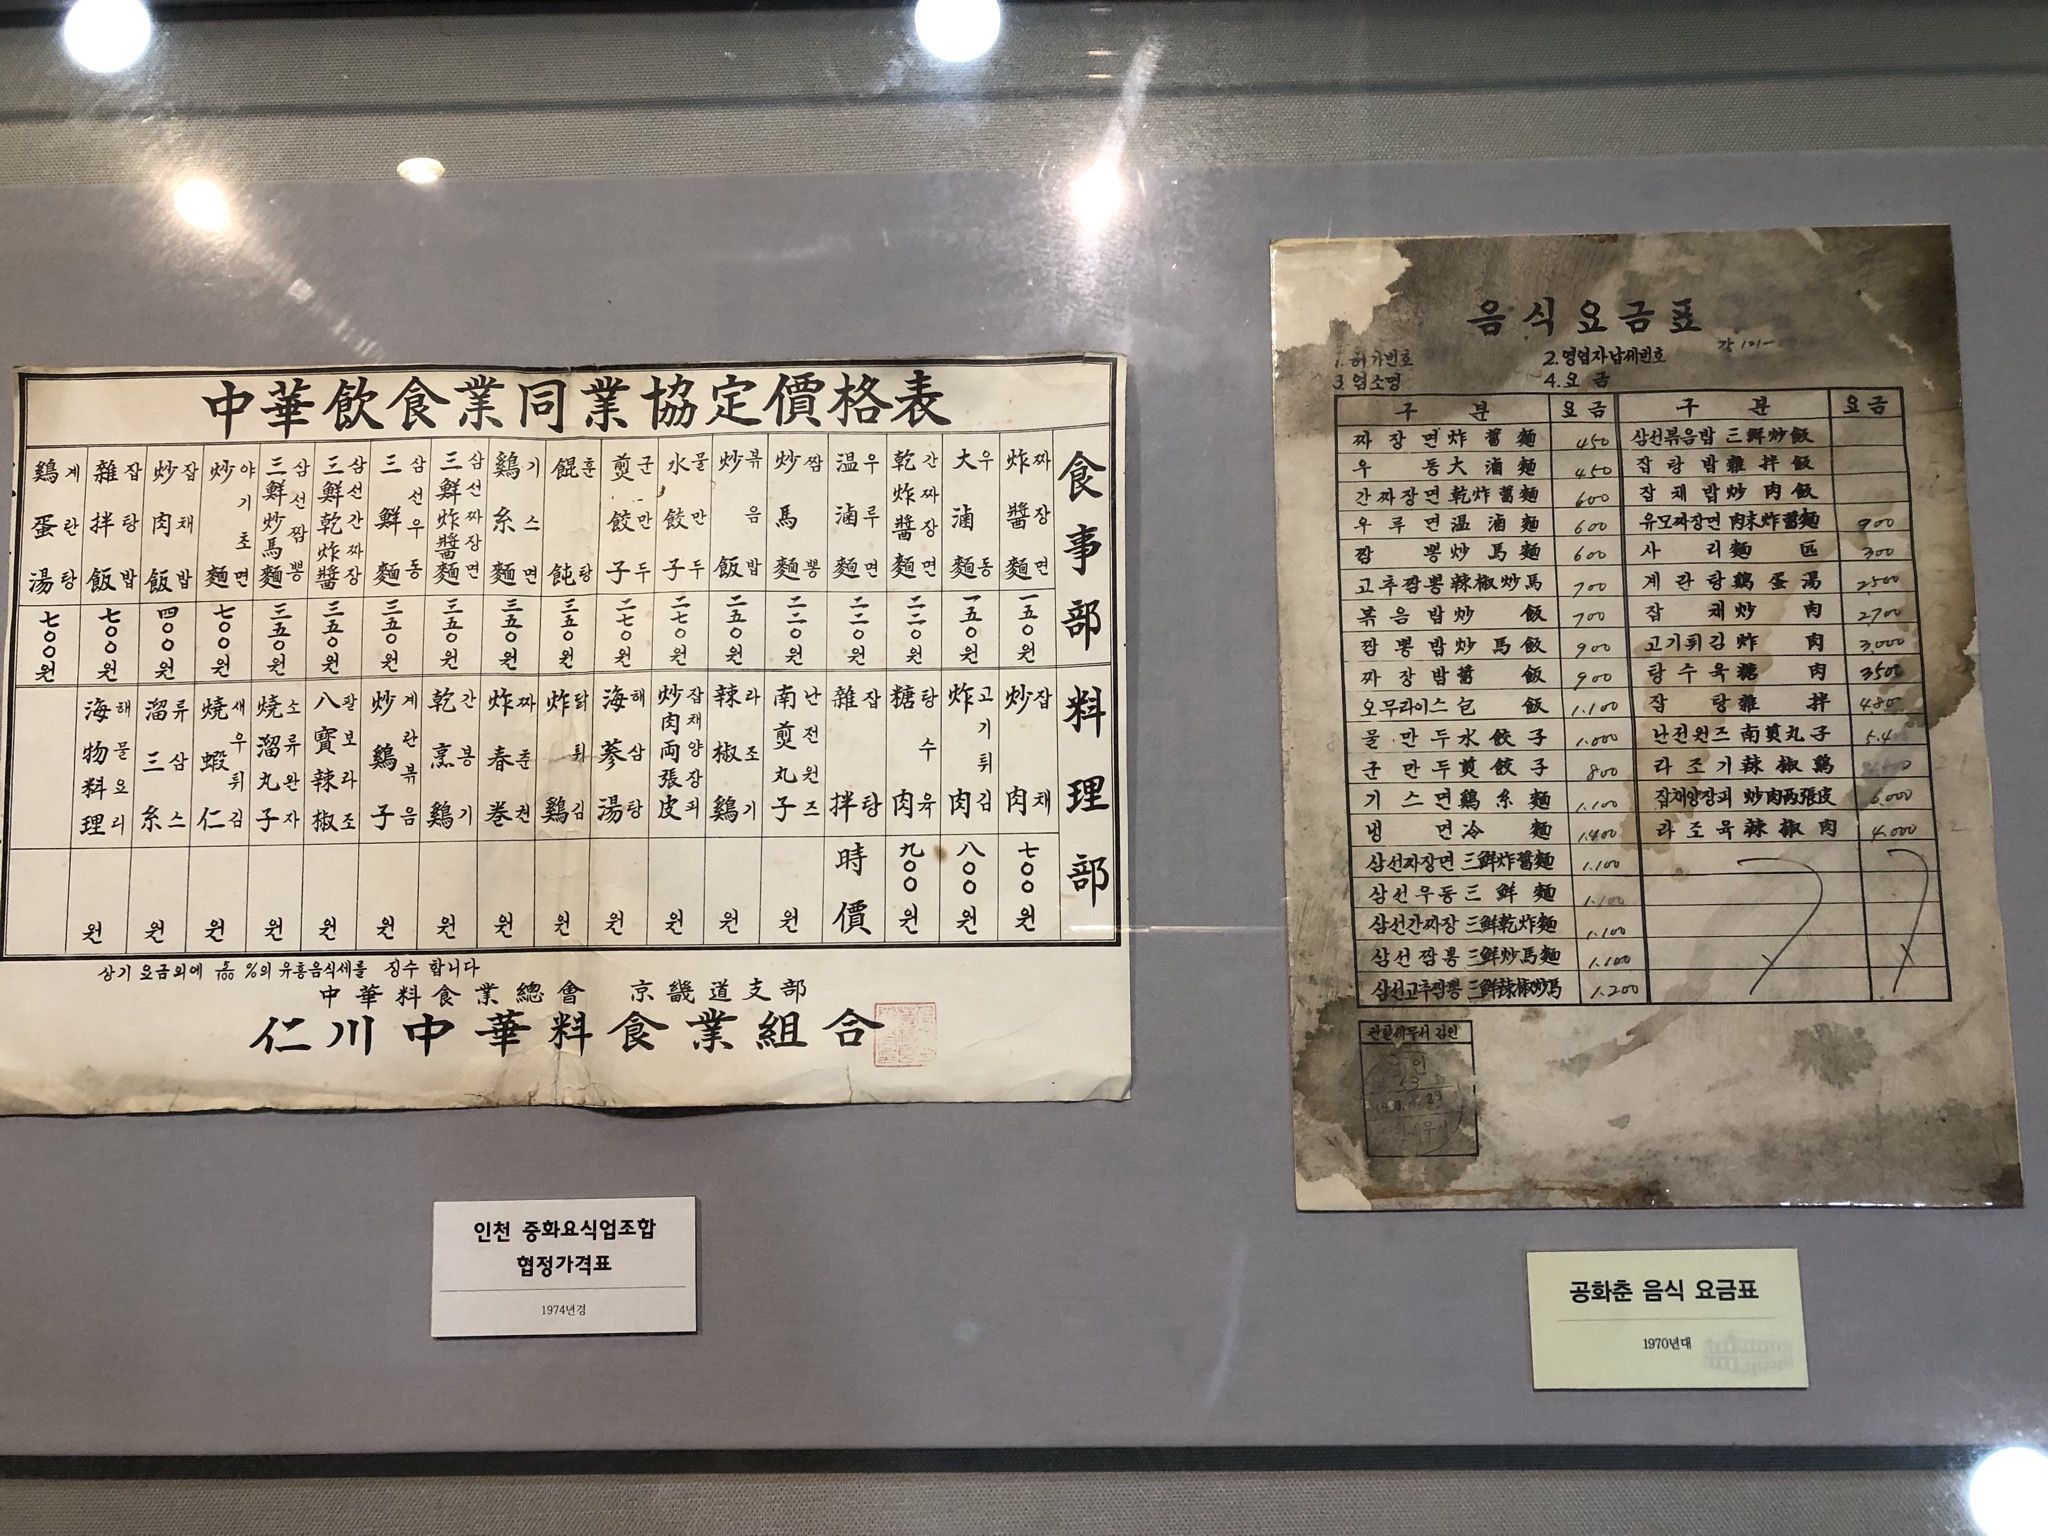 中華飲食業同業協定價格表
食事部
炸醬麵 짜장면 一五〇원
大滷麵 우동 一五〇원
乾炸醬麵 간짜장면 二二〇원
温滷麵 우루면 二二〇원
炒馬麵 짬뽕 二二〇원
炒飯 볶음밥 二五〇원
水餃子 물만두 二七〇원
煎餃子 군만두 二七〇원
餛飩 훈탕 三五〇원
鷄糸麵 기스면 三五〇원
三鮮炸醬麵 삼선짜장면 三五〇원
三鮮麵 삼선우동 三五〇원
三鮮乾炸醬 삼선간짜장 三五〇원
三鮮炒馬麵 삼선짬뽕 三五〇원
炒麵 야기초면 七〇〇원
炒肉飯 잡채밥 四〇〇원
雜拌飯 잡탕밥 七〇〇원
鷄蛋湯 계란탕 七〇〇원
料理部
炒肉 잡채 七〇〇원
炸肉 고기튀김 八〇〇원
糖肉 탕수육 九〇〇원
雜拌 잡탕 時價
南煎丸子 난전원즈 원
辣椒鷄 라조기 원
炒肉両張皮 잡채양장피 원
海蔘湯 해삼탕 원
炸鷄 닭튀김 원
炸春巻 짜춘권 원
乾烹鷄 간봉기 원
炒鷄子 계란볶음 원
八寶辣椒 팔보라조 원
燒溜丸子 소류완자 원
燒蝦仁 새우튀김 원
溜三糸 류삼스 원
海物料理 해물요리 원
상기 요금외에 %의 유흥음식세를 징수 합니다
中華料食業總會 京畿道支部
仁川中華料食業組合
인천 중화요식업조합
협정가격표
1974년경
음식요금표
1. 허가번호 2. 영업자납세번호
3. 업소명 4. 요금
구분 요금 구분 요금
짜장면 炸醬麵 450 삼선볶음밥 三鮮炒飯
우동 大滷麵 450 잡탕밥 雜拌飯
간짜장면 乾炸醬麵 600 잡채밥 炒肉飯
우루면 温滷麵 600 유모짜장면 肉末炸醬麵 900
짬뽕 炒馬麵 600 사리 麵 300
고추짬뽕 辣椒炒馬 700 계란탕 鷄蛋湯 2,500
볶음밥 炒飯 700 잡채 炒肉 2,700
짬뽕밥 炒馬飯 900 고기튀김 炸肉 3,000
짜장밥 醬飯 900 탕수육 糖肉 3500
오무라이스 包飯 1.100 잡탕 雜拌
물만두 水餃子 1.000 난전원즈 南煎丸子
군만두 煎餃子 800 라조기 辣椒鷄
기스면 鷄糸麵 1.100 잡채양장피 炒肉両張皮 6.000
냉면 冷麵 1.400 라조육 辣椒肉 4.000
삼선짜장면 三鮮炸醬麵 1.100
삼선우동 三鮮麵 1.100
삼선간짜장 三鮮乾炸麵 1.100
삼선짬뽕 三鮮炒馬麵 1.100
삼선고추짬뽕 三鮮辣椒炒馬 1.200
관할세무서 검인
공화춘 음식 요금표
1970년대